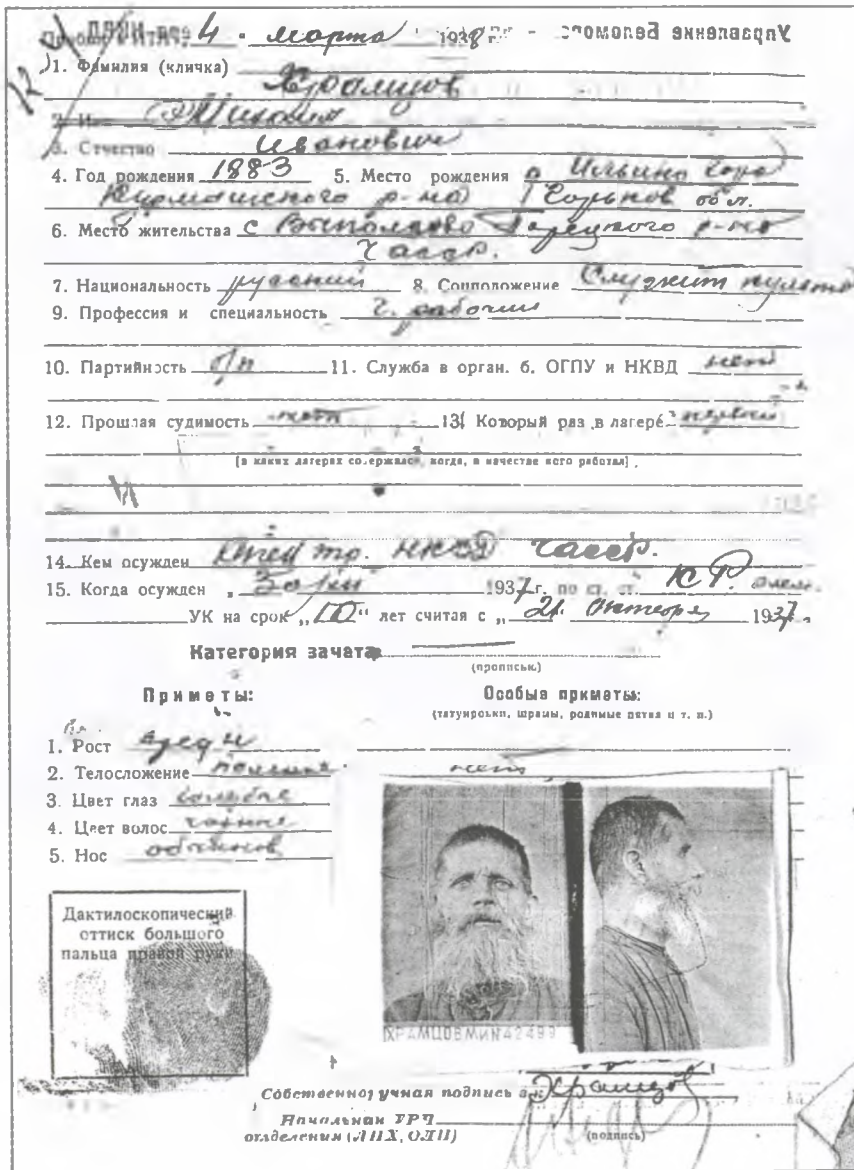 4 марта 1938 г.
Управление Беломоро -
12
1. Фамилия (кличка)
Храмцов
2. И
Михаил
3. Отчество Иванович
4. Год рождения 1883 5. Место рождения Ильина Гора
Курмышского р-на Горьков обл.
6. Место жительства с Выползово Порецкого р-на
ЧАССР.
7. Национальность русский 8. Соцположение Служит культа
9. Профессия и специальность ч. рабочий
10. Партийность б/п 11. Служба в орган. б. ОГПУ и НКВД нет
12. Прошлая судимость нет 13. Который раз в лагере первый
[в каких лагерях содержался, когда, в качестве кого работал]
14. Кем осужден тр. НКВД ЧАССР.
15. Когда осужден 1937 г. по ст. ст. К.Р.
УК на срок „10“ лет считая с „21 октября 1937
Категория зачета
(прописью)
Приметы: Особые приметы:
(татуировки, шрамы, родимые пятна и т. п.)
1. Рост средн
нет
2. Телосложение
3. Цвет глаз голубые
4. Цвет волос
5. Нос обыкнов
Дактилоскопический
оттиск большого
пальца правой руки
ХРАМЦОВ МИН 42499
Собственноручная подпись Храмцов
Начальник УРЧ
отделения (ЛПХ, ОЛП) (подпись)